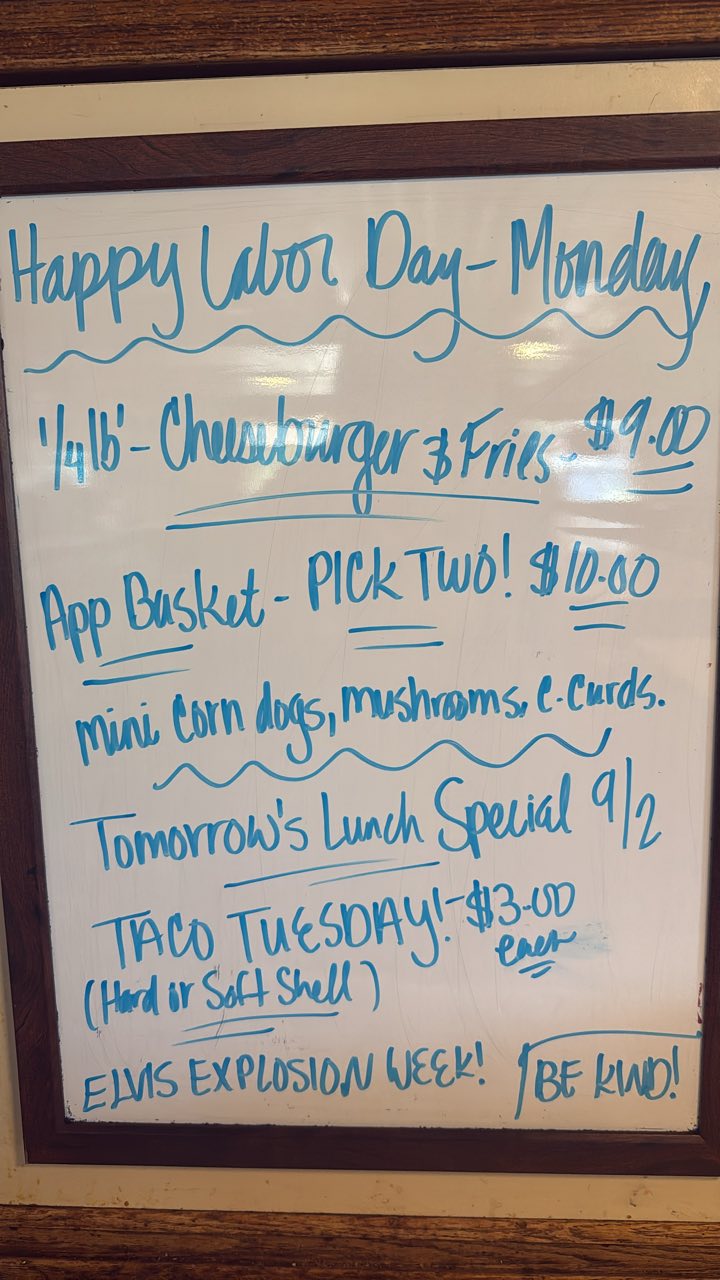 Happy Labor Day - Monday
1/4 lb' - Cheeseburger & Fries - $9.00
App Basket - PICK TWO! $10.00
mini corn dogs, mushrooms, c-curds.
Tomorrow's Lunch Special 9/2
TACO TUESDAY! - $3.00
each
(Hard or Soft Shell)
ELVIS EXPLOSION WEEK!
BE KIND!